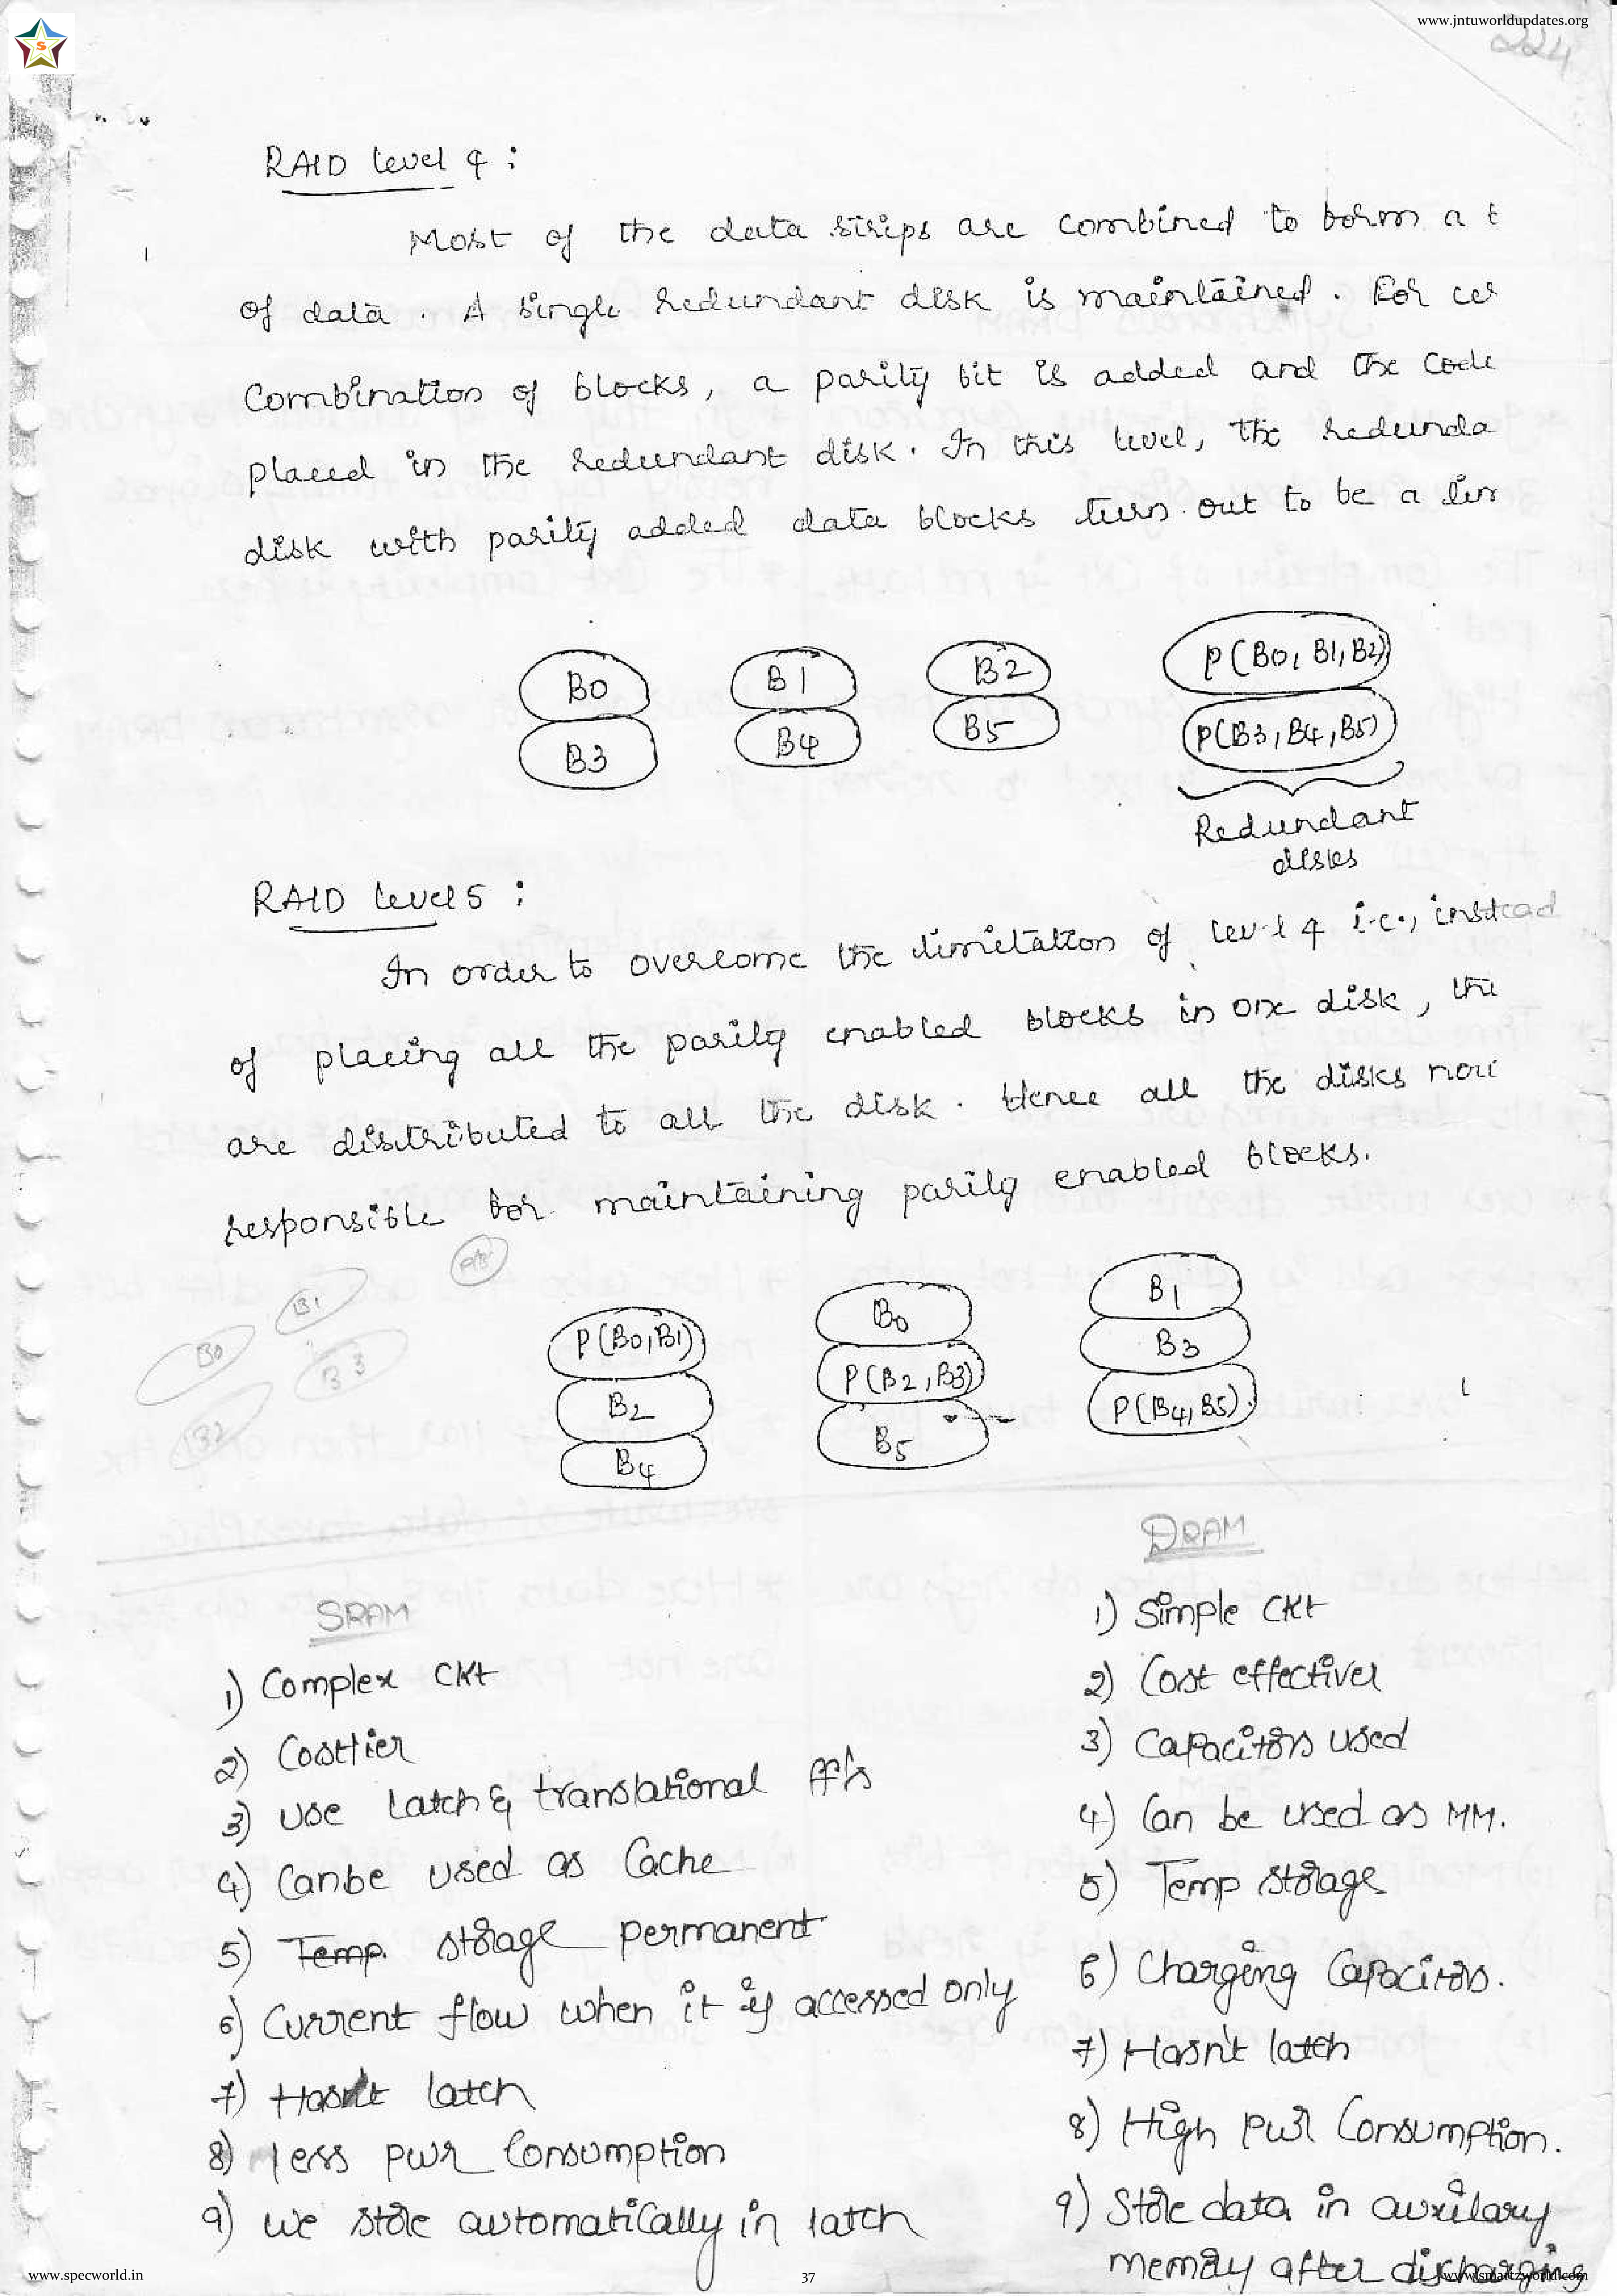 www.jntuworldupdates.org
224
RAID level 4 :
Most of the data strips are combined to form a
of data . A single redundant disk is maintained . For
Combination of blocks, a parity bit is added and the code
placed in the redundant disk. In this level, the redunda
disk with parity added data blocks turn out to be a
B0 B1 B2 P(B0, B1, B2)
B3 B4 B5 P(B3, B4, B5)
Redundant
disks
RAID level 5 :
In order to overcome the limitation of level 4 i.e., instead
of placing all the parity enabled blocks in one disk, the
are distributed to all the disk. Hence all the disks
responsible for maintaining parity enabled blocks.
B1
B0 B3
B2
P(B0, B1) B0 B1
B2 P(B2, B3) B3
B4 B5 P(B4, B5)
SRAM
1) Complex CKt
2) Costlier
3) use latch & translational ff's
4) Canbe used as Cache
5) Temp. storage permanent
6) Current flow when it is accessed only
7) Hasn't latch
8) less pwr Consumption
9) we store automatically in latch
DRAM
1) Simple CKt
2) Cost effective
3) Capacitors used
4) Can be used as MM.
5) Temp storage
6) Charging Capacitors.
7) Hasn't latch
8) High pwr Consumption.
9) Store data in auxilary
memory after discharging
www.specworld.in
37
www.smartzworld.com